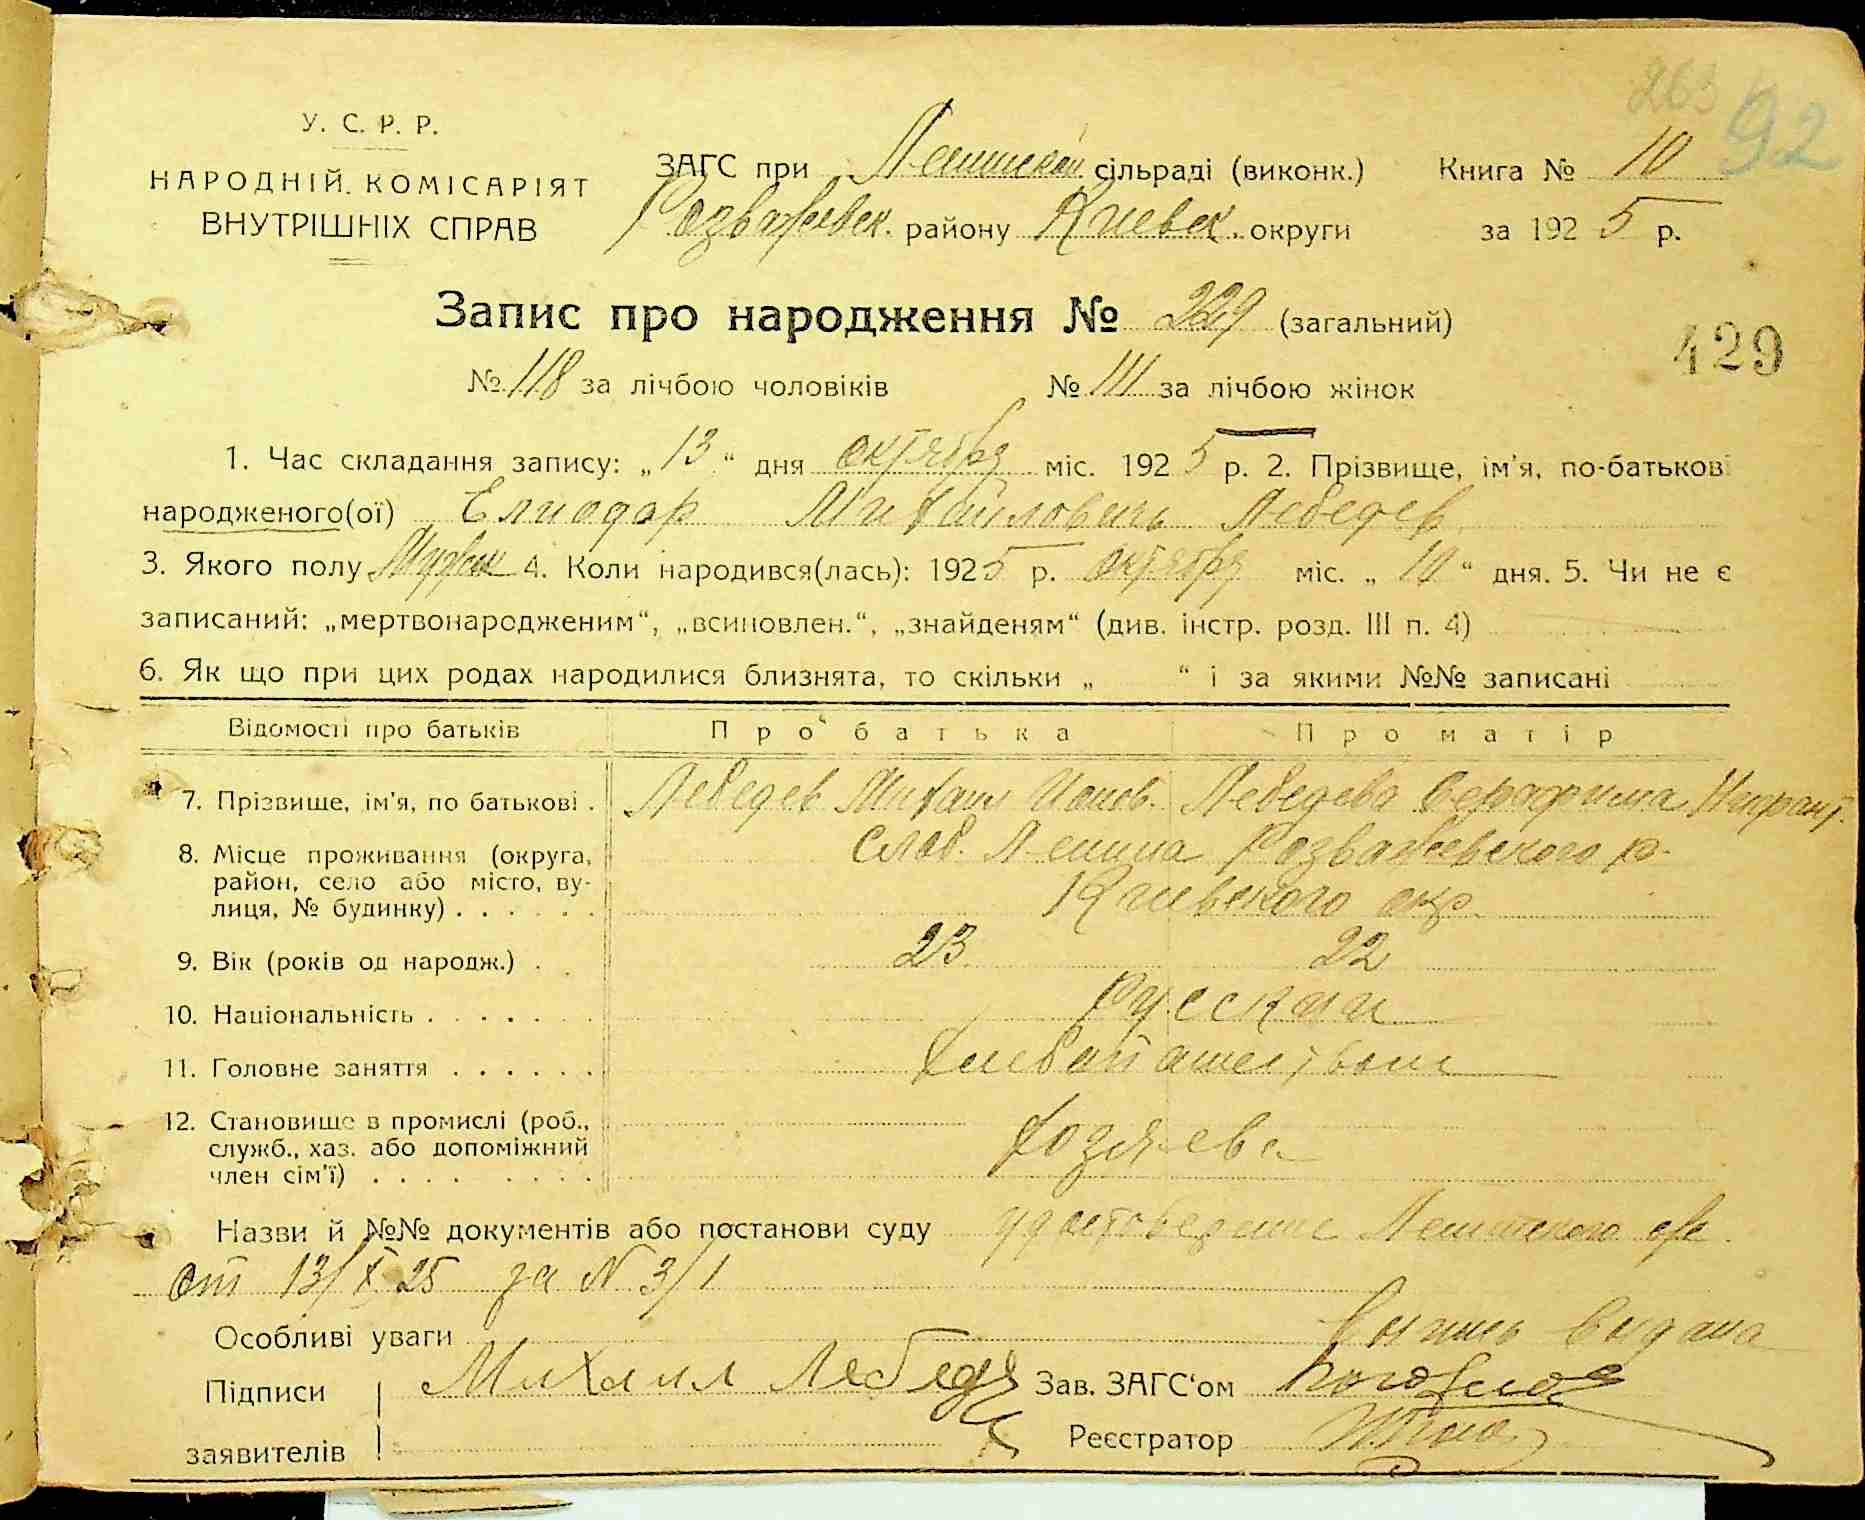 263 92
У. С. Р. Р.
НАРОДНІЙ КОМІСАРІЯТ
ВНУТРІШНІХ СПРАВ
ЗАГС при Ленинской сільраді (виконк.) Книга № 10
Розважевск. району Киевск. округи за 1925 р.
Запис про народження № 229 (загальний)
429
№ 118 за лічбою чоловіків № 111 за лічбою жінок
1. Час складання запису: „13“ дня октября міс. 1925 р. 2. Прізвище, ім'я, по-батькові
народженого(ої) Елиодор Михайлович Лебедев
3. Якого полу Мужск 4. Коли народився(лась): 1925 р. октября міс. „10“ дня. 5. Чи не є
записаний: „мертвонародженим“, „всиновлен.“, „знайденям“ (див. інстр. розд. III п. 4)
6. Як що при цих родах народилися близнята, то скільки „ “ і за якими №№ записані
Відомості про батьків Про батька Про матір
7. Прізвище, ім'я, по батькові . Лебедев Михаил Ионов. Лебедева Серафима
8. Місце проживання (округа,
район, село або місто, ву-
лиця, № будинку) . . . . . .
Слоб. Ленина Розважевского р.
Киевского окр.
9. Вік (років од народж.) . . 23 22
10. Національність . . . . . . . Русский
11. Головне заняття . . . . . . Хлебопашеством
12. Становище в промислі (роб.,
служб., хаз. або допоміжний
член сім'ї) . . . . . . . . .
Хозяева
Назви й №№ документів або постанови суду удостоверение Ленинского с/с
от 13/X 25 за N 3/1
Особливі уваги Выпись выдана
Підписи Михаил Лебедев Зав. ЗАГС'ом
заявителів Реєстратор